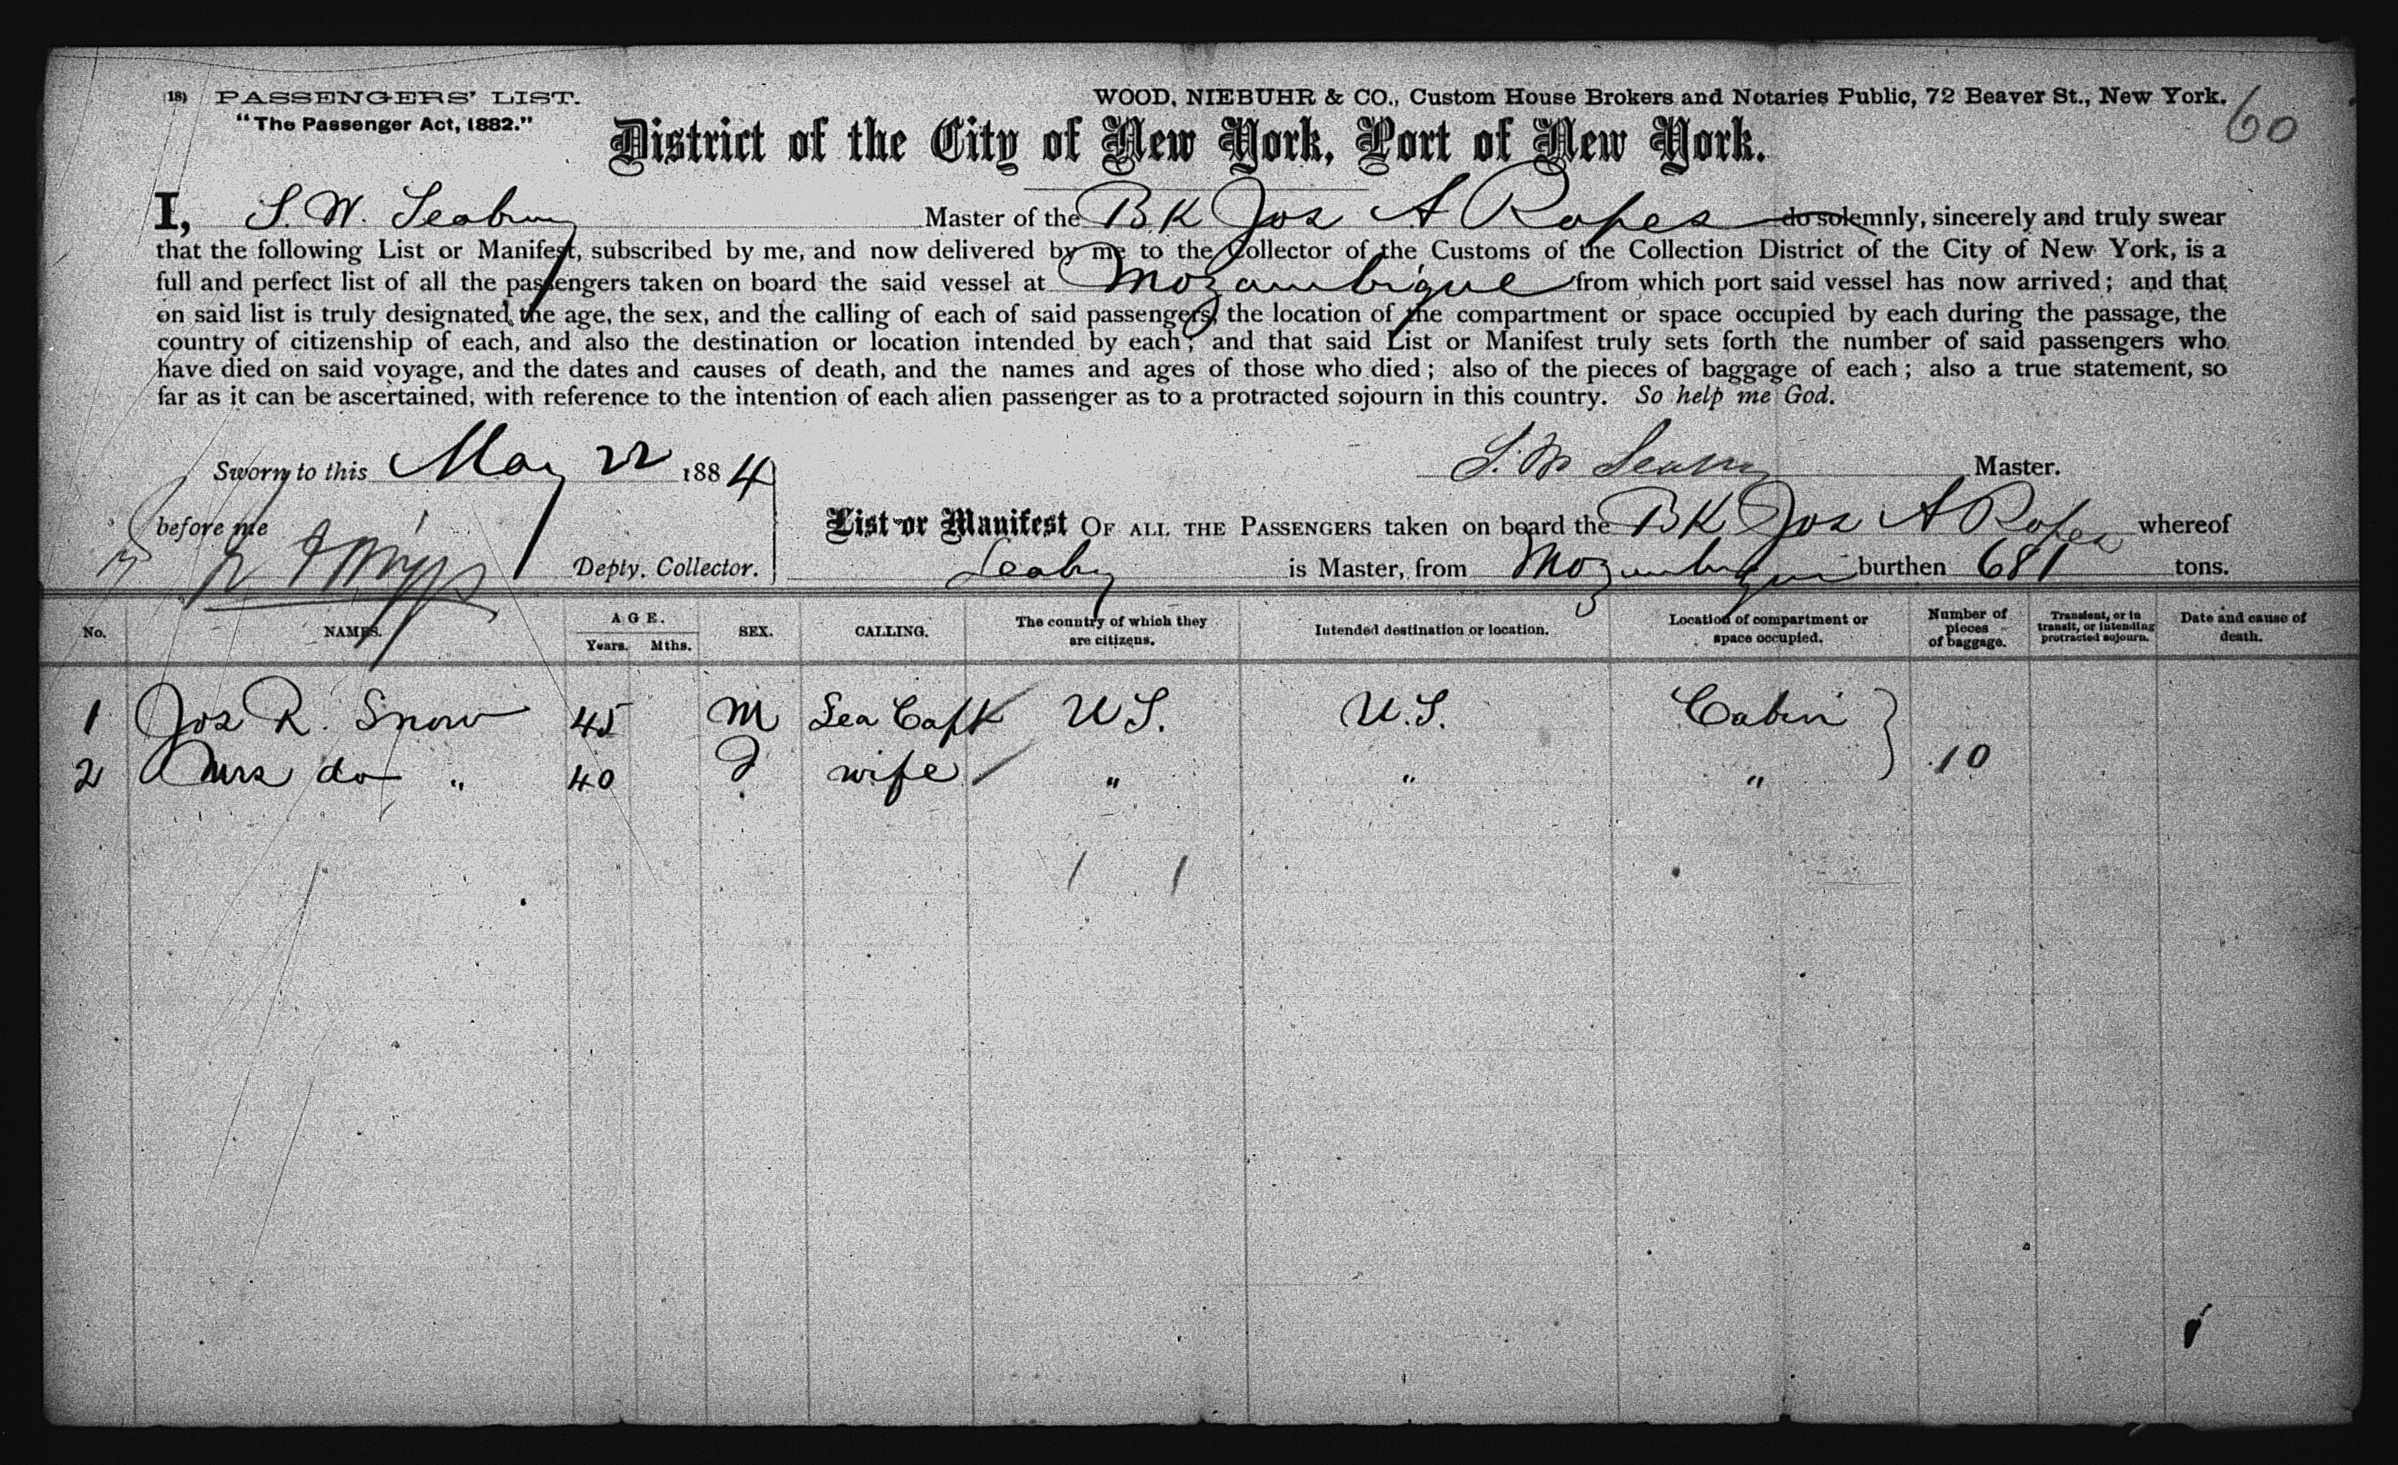 (18) PASSENGERS' LIST.
"The Passenger Act, 1882."
WOOD, NIEBUHR & CO., Custom House Brokers and Notaries Public, 72 Beaver St., New York.
60
District of the City of New York, Port of New York.
I, S. W. Seabury Master of the BK Jos A Ropes do solemnly, sincerely and truly swear
that the following List or Manifest, subscribed by me, and now delivered by me to the Collector of the Customs of the Collection District of the City of New York, is a
full and perfect list of all the passengers taken on board the said vessel at Mozambique from which port said vessel has now arrived; and that
on said list is truly designated the age, the sex, and the calling of each of said passengers, the location of the compartment or space occupied by each during the passage, the
country of citizenship of each, and also the destination or location intended by each; and that said List or Manifest truly sets forth the number of said passengers who
have died on said voyage, and the dates and causes of death, and the names and ages of those who died; also of the pieces of baggage of each; also a true statement, so
far as it can be ascertained, with reference to the intention of each alien passenger as to a protracted sojourn in this country. So help me God.
Sworn to this May 22 1884
S. W. Seabury Master.
before me
Depty. Collector.
List or Manifest OF ALL THE PASSENGERS taken on board the BK Jos A Ropes whereof
Seabury is Master, from Mozambique burthen 681 tons.
No. NAMES. AGE. Years. Mths. SEX. CALLING. The country of which they are citizens. Intended destination or location. Location of compartment or space occupied. Number of pieces of baggage. Transient, or in transit, or intending protracted sojourn. Date and cause of death.
1 Jos R. Snow 45 M Sea Capt U S. U.S. Cabin
2 Mrs do " 40 F wife " " " 10